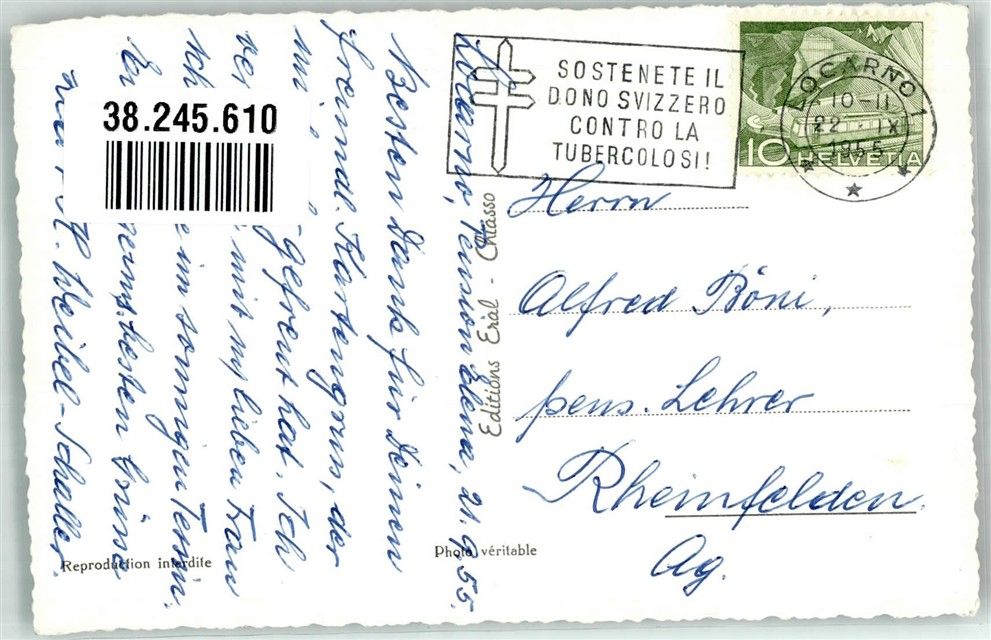 38.245.610
SOSTENETE IL
DONO SVIZZERO
CONTRO LA
TUBERCOLOSI!
LOCARNO 1
10-11
22 · IX
1955
10 HELVETIA
Locarno, Pension Elena, 21.9.55.
Besten Dank für Deinen
freundl. Kartengruss, der
gefreut hat. Ich
mit m/lieben Frau
im sonnigen Tessin.
besten Grüsse
H. Weibel-Schaller.
Herrn
Alfred Böni,
pens. Lehrer
Rheinfelden
Ag.
Editions Eral - Chiasso
Photo véritable
Reproduction interdite